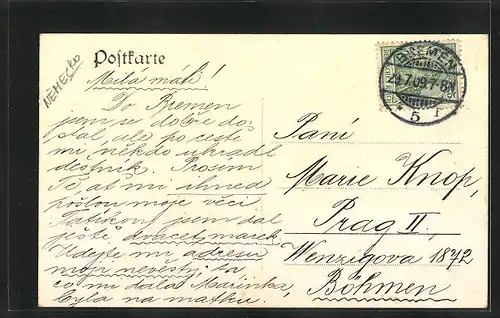 NĚMECKO
Postkarte
BREMEN
29.7.09.7-8V.
* 5 r
Milá máti!
Do Bremen
jsem se dobře do-
stal, ale po cestě
mi někdo ukradl
deštník. Prosím
Tě, at mi ihned
pošlou moje věci
Tatíkovi jsem dal
ještě dvacet marek
Udejte mi adresu
mojí nevěsty, za
co mi dala Marinka,
byla na matku.
Paní
Marie Knop,
Prag II.,
Wenzigova 1872
Böhmen